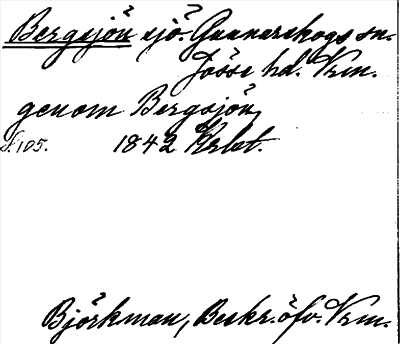 Bergsjön sjö. Gunnarskogs sn.
Jösse hd. Vrm.
genom Bergsjön
S. 105. 1842 Krbt.
Björkman, Beskr. öfv. Vrm.